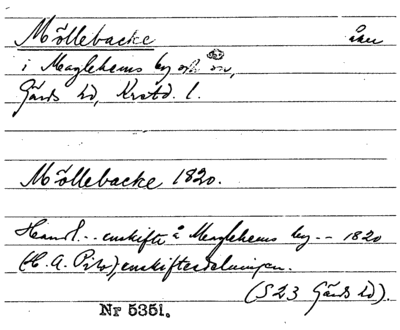 Möllebacke åker
i Maglehems by och sn,
Gärds hd, Krstd. l.
Möllebacke 1820.
Handl. -- enskifte å Maglehems by -- 1820
(H. A. ), enskiftesdelningen.
(S 23 Gärds hd).
Nr 5351.